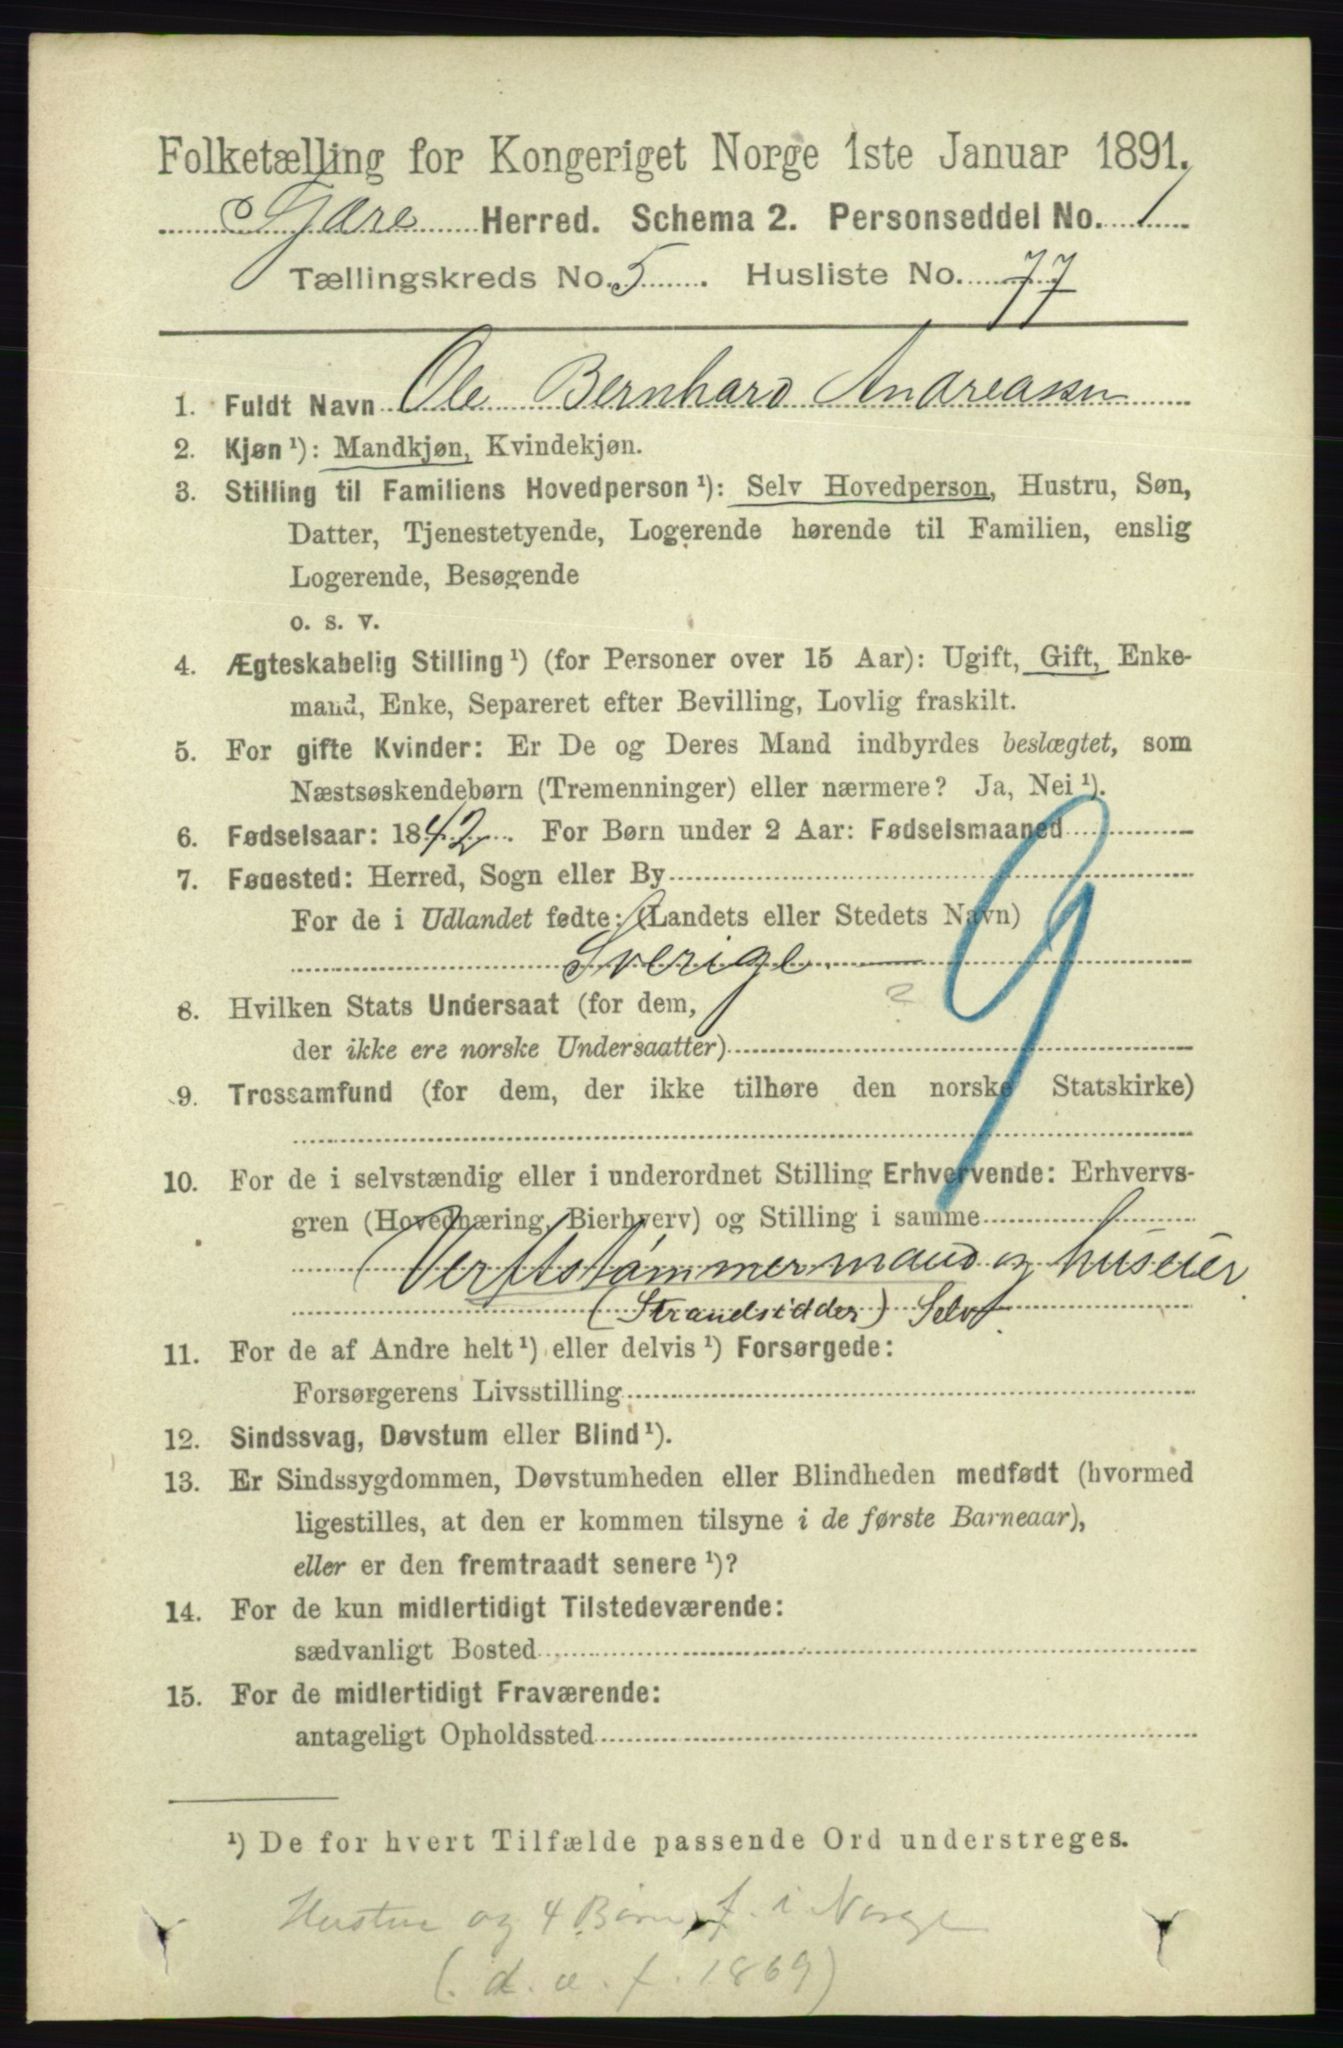 Folketælling for Kongeriget Norge 1ste Januar 1891.
Gjære Herred. Schema 2. Personseddel No. 1
Tællingskreds No. 5. Husliste No. 77
1. Fuldt Navn Ole Bernhard Andreassen
2. Kjøn ¹): Mandkjøn, Kvindekjøn.
3. Stilling til Familiens Hovedperson ¹): Selv Hovedperson, Hustru, Søn,
Datter, Tjenestetyende, Logerende hørende til Familien, enslig
Logerende, Besøgende
o. s. v.
4. Ægteskabelig Stilling ¹) (for Personer over 15 Aar): Ugift, Gift, Enke-
mand, Enke, Separeret efter Bevilling, Lovlig fraskilt.
5. For gifte Kvinder: Er De og Deres Mand indbyrdes beslægtet, som
Næstsøskendebørn (Tremenninger) eller nærmere? Ja, Nei ¹).
6. Fødselsaar: 1842. For Børn under 2 Aar: Fødselsmaaned
7. Fødested: Herred, Sogn eller By
For de i Udlandet fødte: (Landets eller Stedets Navn)
Sverige
9
8. Hvilken Stats Undersaat (for dem,
der ikke ere norske Undersaatter)
9. Trossamfund (for dem, der ikke tilhøre den norske Statskirke)
10. For de i selvstændig eller i underordnet Stilling Erhvervende: Erhvervs-
gren (Hovednæring, Bierhverv) og Stilling i samme
(Verftstømmermand og huseier
(Strandsidder) Selv.
11. For de af Andre helt ¹) eller delvis ¹) Forsørgede:
Forsørgerens Livsstilling
12. Sindssvag, Døvstum eller Blind ¹).
13. Er Sindssygdommen, Døvstumheden eller Blindheden medfødt (hvormed
ligestilles, at den er kommen tilsyne i de første Barneaar),
eller er den fremtraadt senere ¹)?
14. For de kun midlertidigt Tilstedeværende:
sædvanligt Bosted
15. For de midlertidigt Fraværende:
antageligt Opholdssted
¹) De for hvert Tilfælde passende Ord understreges.
Hustru og 4 Børn f. i Norge
(d. æ. f. 1869)